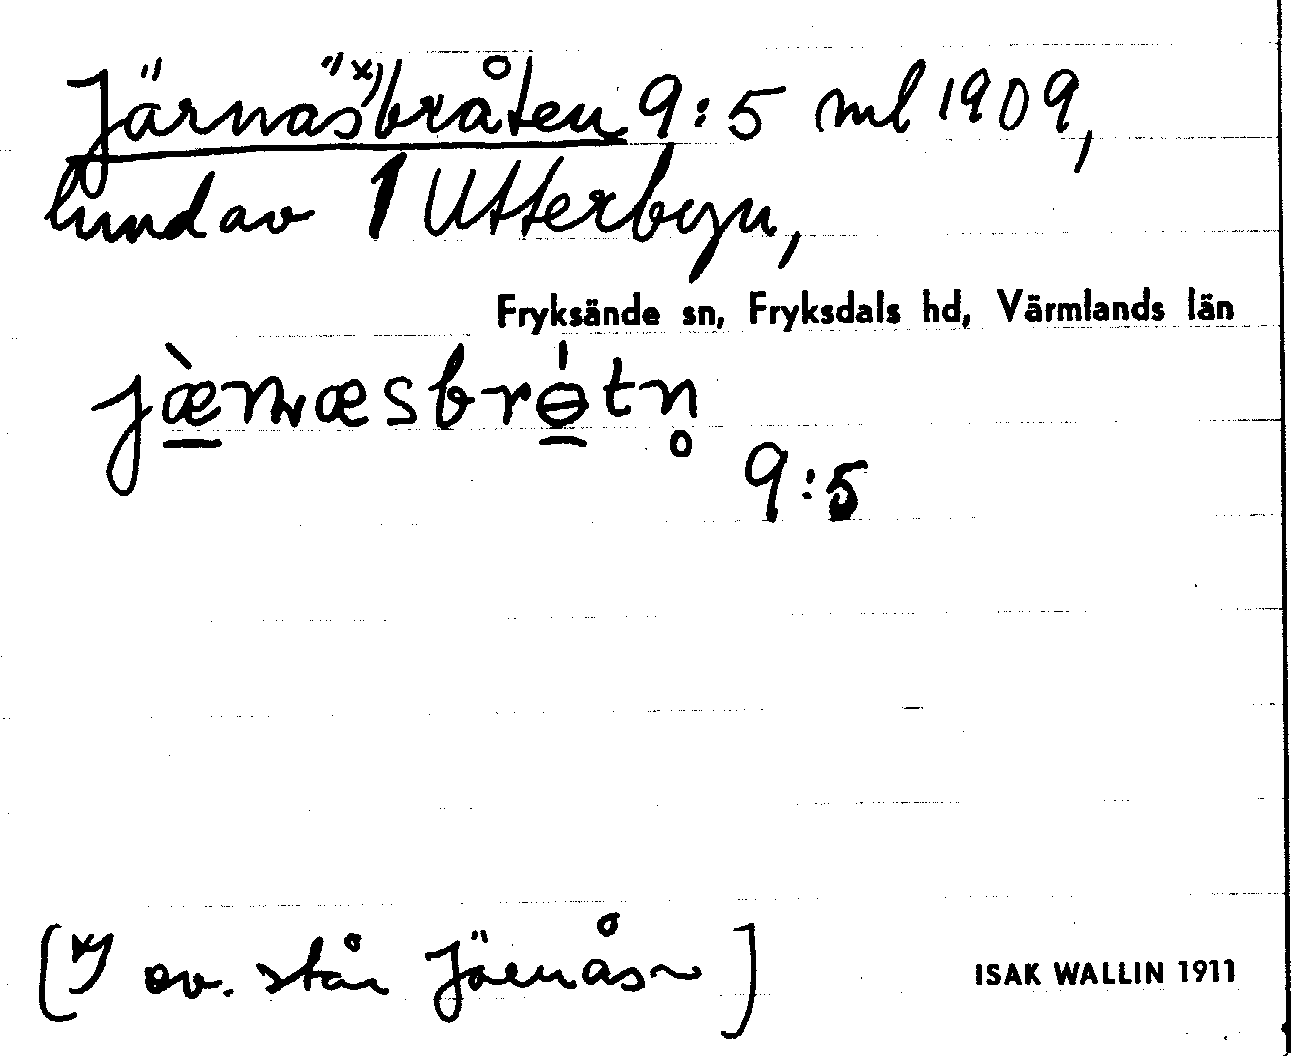 Järnäs*)bråten 9:5 ml 1909,
hmd av 1 Utterbyn,
Fryksände sn, Fryksdals hd, Värmlands län
jæ̀rnæsbrɵ́tn̥
9:5
[*) ov. står Järnås~]
ISAK WALLIN 1911